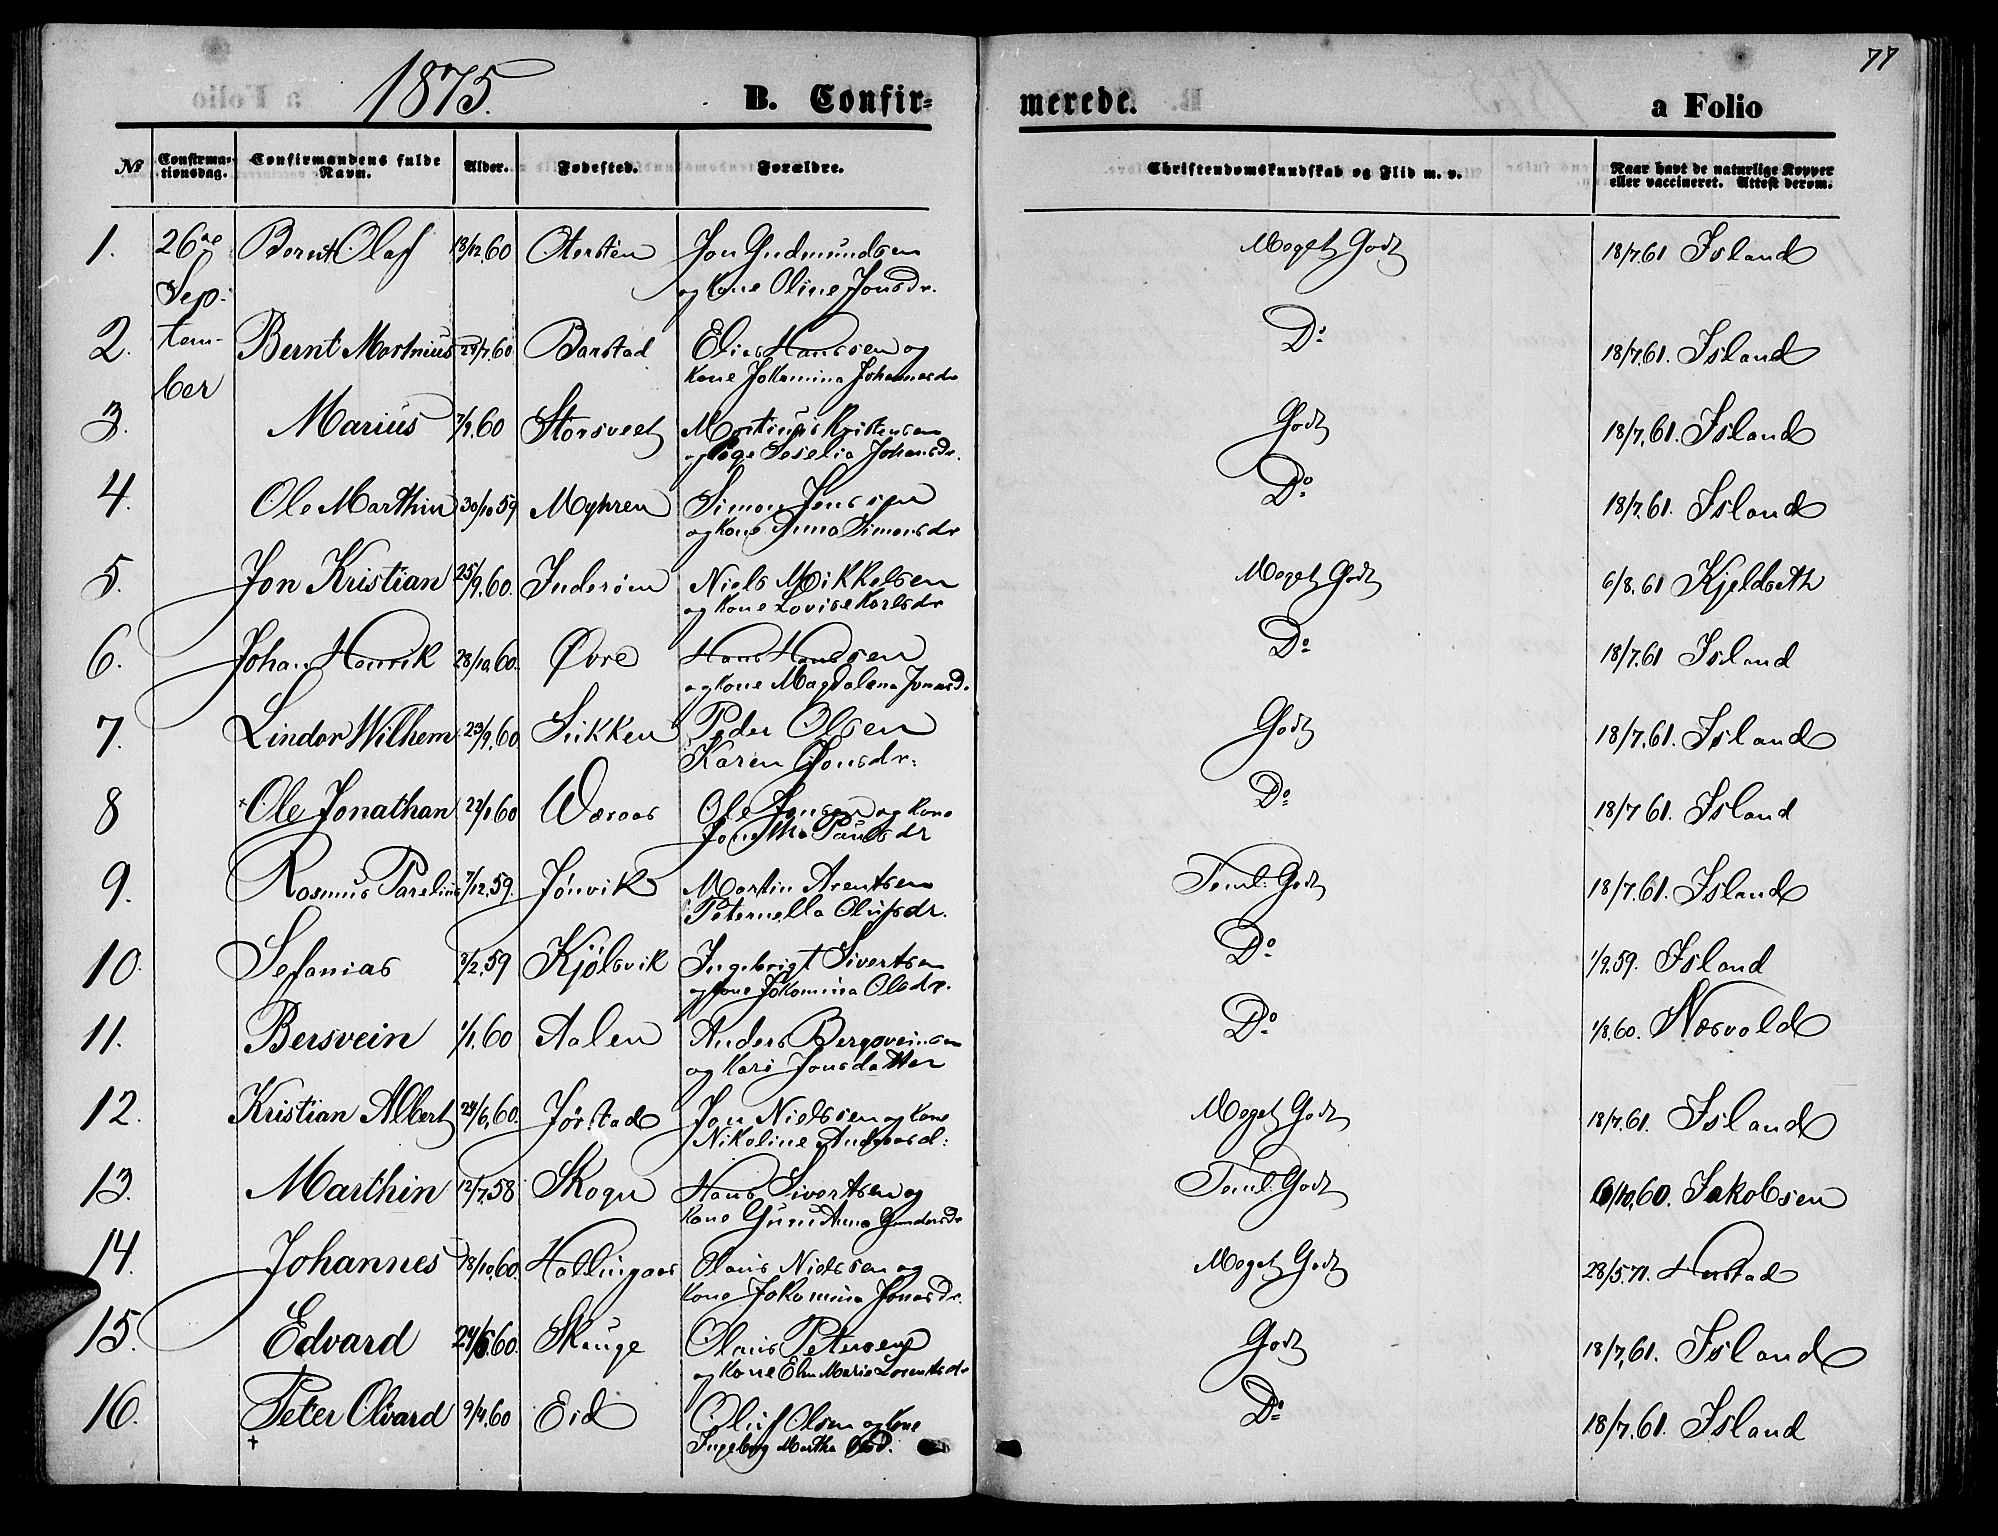 77
1875.
B. Confir-
merede.
a Folio
№
Confirma-
tionsdag.
Confirmandens fulde
Navn.
Alder.
Fødested.
Forældre.
Christendomskundskab og Flid m. v.
Naar havt de naturlige Kopper
eller vaccineret. Attest derom.
1. 26de Bernt Olaf 18/12.60 Jon Gudmundsen Meget Godt 18/7.61 Island
Sep- og kone Oline Jonsdr.
2. tem- Bernt Martinius 29/7.60 Barstad Elias Hanssen og Do 18/7.61. Island
ber kone Jokomina Johannesdr
3. Marius 7/9.60 Storsveet Martinus Kristensen Godt 18/7.61. Island
og Pige Seselia Johansdr.
4. Ole Marthin 30/10 59 Myhren Simon Jenssen Do 18/7.61. Island
og kone Anna Simonsdr
5. Jon Kristian 25/9.60. Inderøen Niels Mikkelsen Meget Godt 6/8.61 Kjeldseth
og kone Lovise Karlsdr
6. Johan Henrik 28/10.60. Øvre Hans Hanssen Do 18/7.61 Island
og kone Magdalena Jonasd.
7. Lindor Wilhem 23/9.60 Peder Olsen Godt 18/7.61. Island
Karen Jonsdr:
8 + Ole Jonathan 22/1 60 Ole Jensen og kone Do 18/7 61. Island
Paulsdr
9. Rasmus Parelius 7/12.59. Jönvik Martin Arentsen Teml: Godt 18/7.61. Island
Peternella Olufsdr.
10. Sefanias 3/2.59 Kjølsvik Ingebrigt Sivertsen Do 1/9.59. Island
og kone Jokomina Olsdr.
11. Bersvein 1/1.60 Aalen Anders Bergsveinsen Do 1/8.60. Næsvold
og Kari Jonsdatter
12. Kristian Albert 24/6.60. Jørstad Jon Nielssen og kone Meget Godt 18/7.61. Island
Nikoline Andreasd:
13. Marthin 12/7.58 Skogn Hans Sivertsen og Teml: Godt 6/10.60. Jakobsen
kone Guru Anna Gundersdr
14. Johannes 18/10.60. Hallingaas Olaus Nielssen og Meget Godt 28/5.71. Hustad
kone Jokomina Jonasdr.
15. Edvard 24/5.60. Skauge Olaus Petersen Godt 18/7.61. Island
og kone Elen Marie Lorentsdr
16. Peter Olvard 9/4.60 Eid Oluf Olsen og kone Do 18/7.61. Island
+ Ingeborg Martha